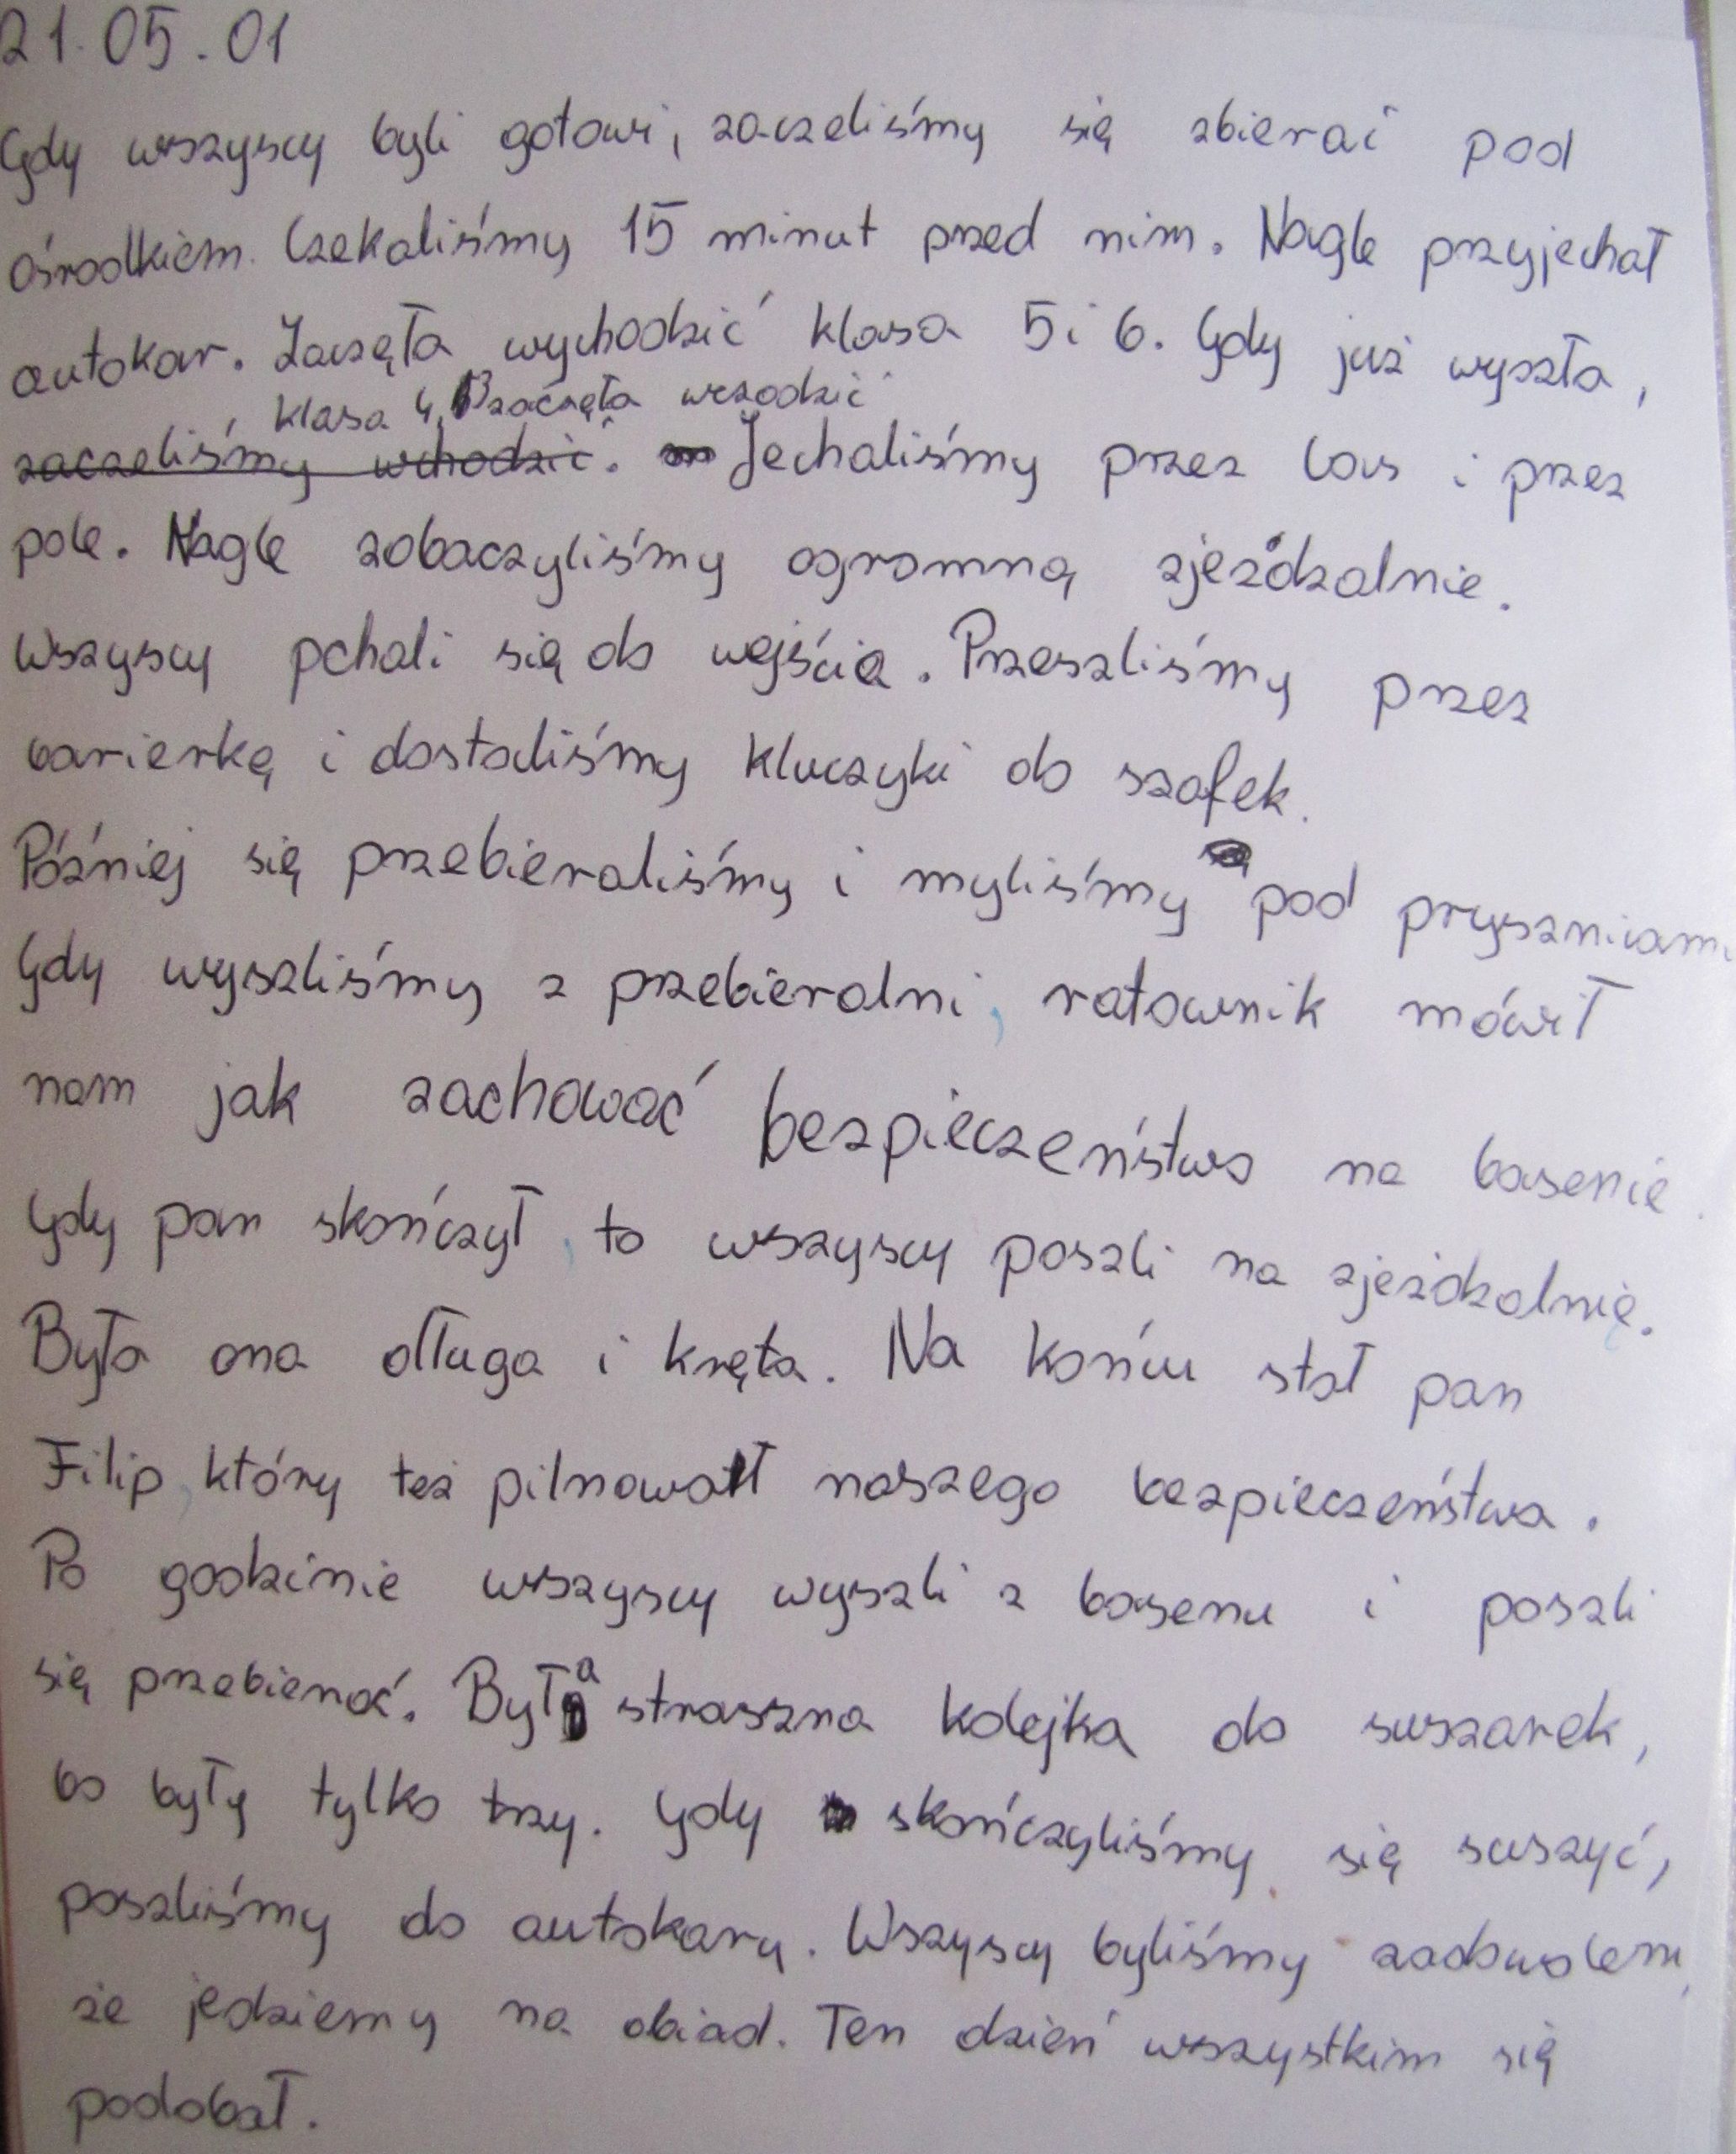 21.05.01
Gdy wszyscy byli gotowi, zaczeliśmy się zbierać pod
ośrodkiem. Czekaliśmy 15 minut przed nim. Nagle przyjechał
autokar. Zaczęła wychodzić klasa 5 i 6. Gdy już wyszła,
klasa 4, B zaczęła wszodzić
zaczeliśmy wchodzić. Jechaliśmy przez las i przez
pole. Nagle zobaczyliśmy ogromną zjeżdzalnie.
Wszyscy pchali się do wejścia. Przeszliśmy przez
barierkę i dostaliśmy kluczyki do szafek.
Później się przebieraliśmy i myliśmy pod prysznicami
Gdy wyszliśmy z przebieralni, ratownik mówił
nam jak zachować bezpieczeństwo na basenie.
Gdy pan skończył, to wszyscy poszli na zjeżdzalnię.
Była ona długa i kręta. Na końcu stał pan
Filip, który też pilnował naszego bezpieczeństwa.
Po godzinie wszyscy wyszli z basenu i poszli
się przebierać. Była straszna kolejka do suszarek,
bo były tylko trzy. Gdy skończyliśmy się suszyć,
poszliśmy do autokaru. Wszyscy byliśmy zadowoleni,
że jedziemy na obiad. Ten dzień wszystkim się
podobał.